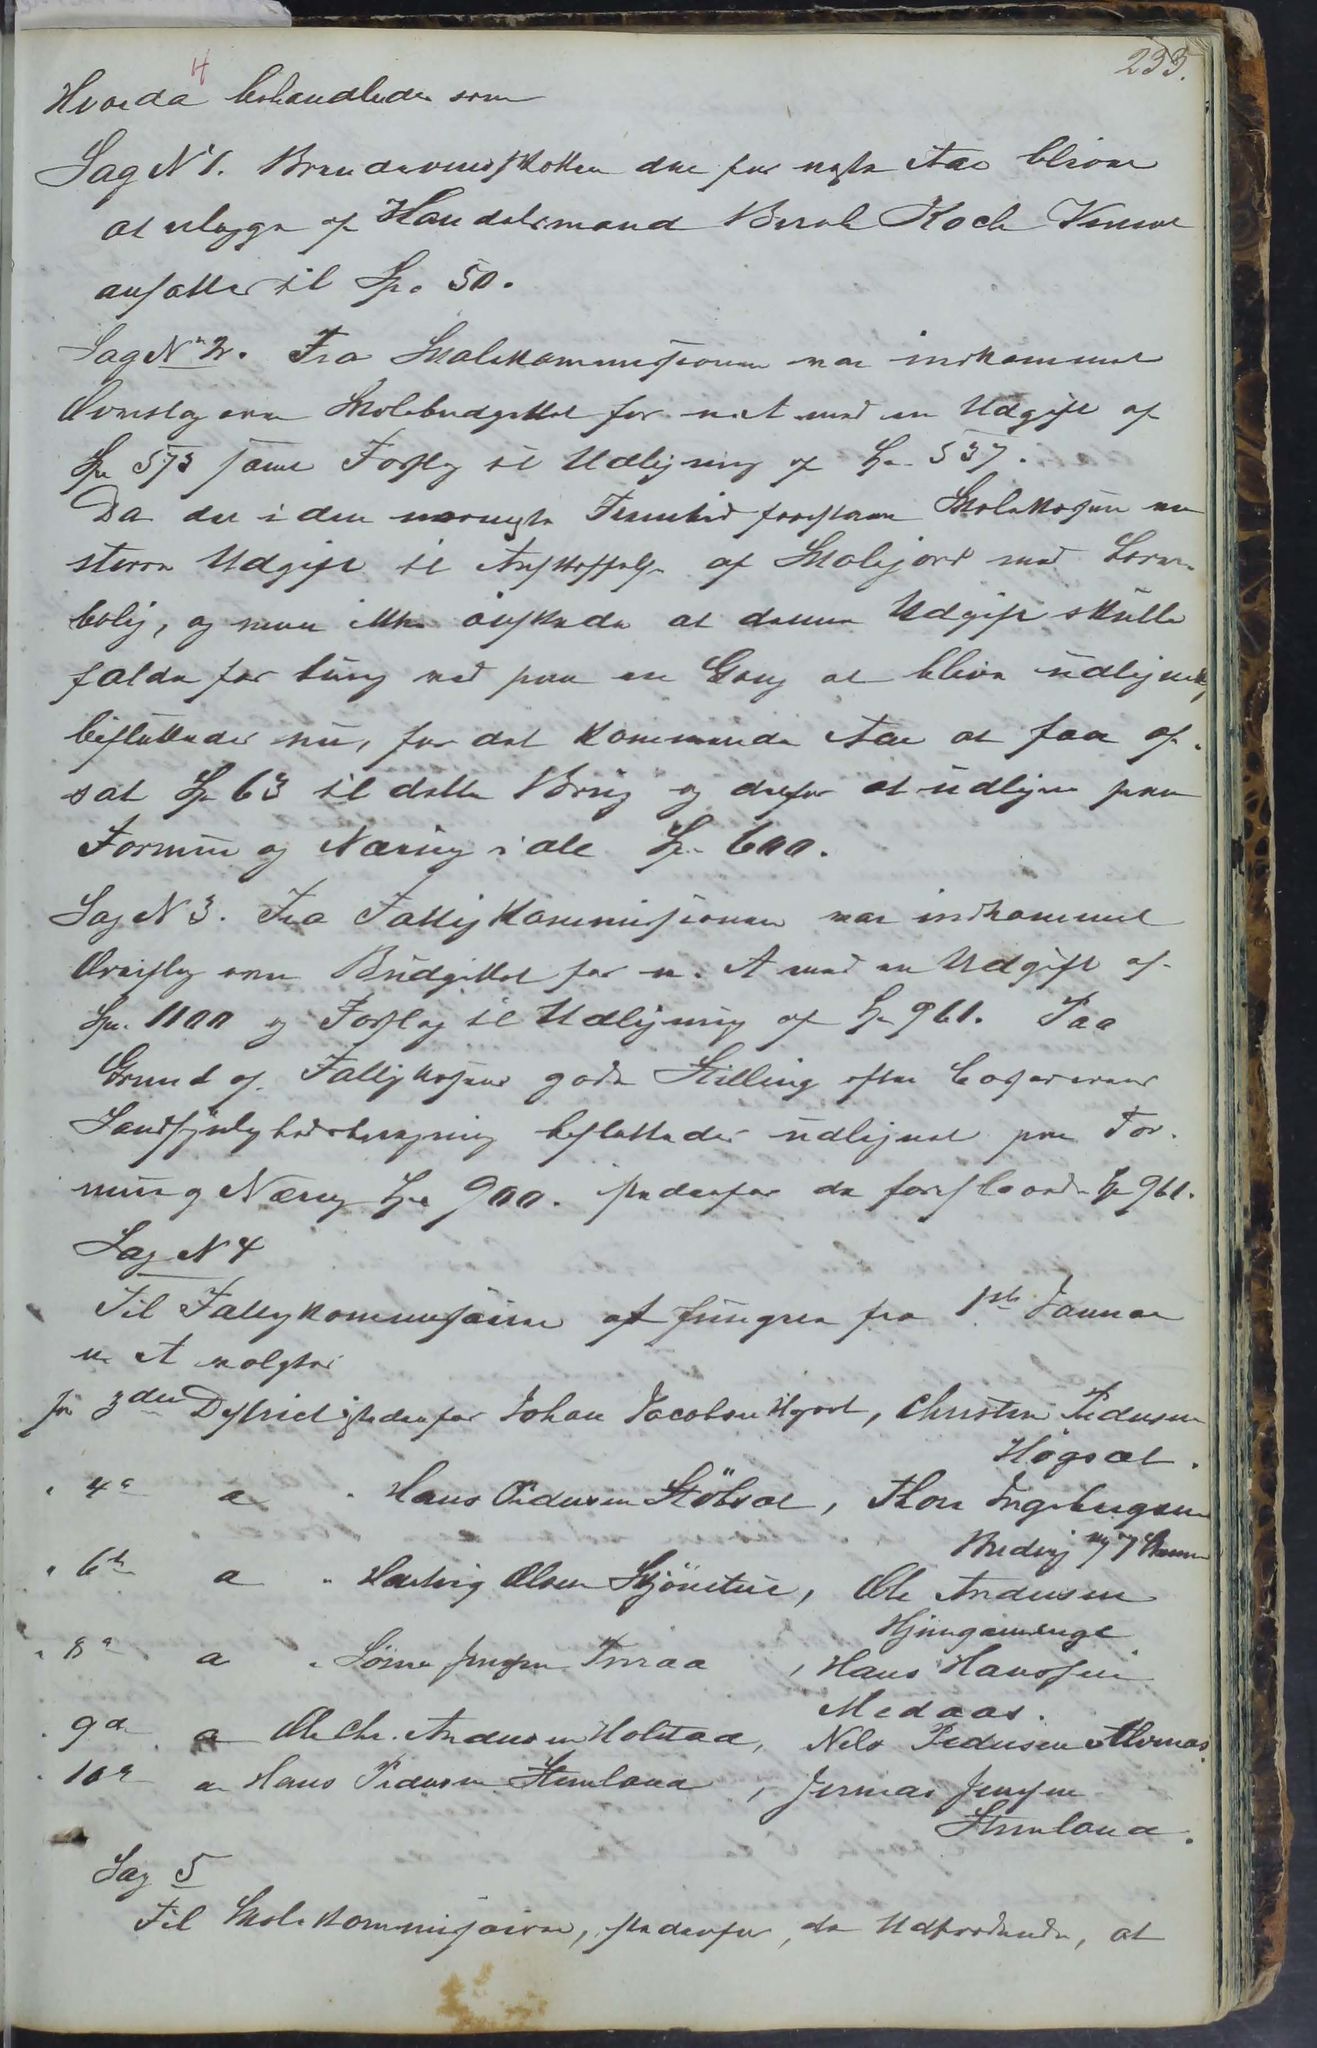 233.
Hvorda behandledes som
Sag N 1. Brændevinsskatten der for næste Aar bliver
at erlægge af Handelsmand Bernh Koch
ansattes til Sp. 50.
Sag N 2. Fra Skolekommissionen var indkommet
Overslag over Skolebudgettet for n. A med en Udgift af
Sp 573 samt Forslag til Udligning af Sp. 537.
Da der i den nærmeste Fremtid forestaar Skolekassen en
større Udgift til Anskaffelse af Skolejord med
bolig, og man ikke ønskede at denne Udgift skulle
falde for tung ved paa en Gang at blive udlignet,
besluttedes nu, for det kommende Aar at faa af-
sat Sp 63 til dette Brug og derfor at udligne paa
Formue og Næring i alt Sp. 600.
Sag N 3. Fra Fattigkommissionen var indkommet
Overslag over Budgettet for n. A med en Udgift af
Sp. 1100 og Forslag til Udligning af Sp 961. Paa
Grund af Fattigkassens gode Stilling efter
Sandsynlighedsberegning besluttedes udlignet paa For-
mue og Næring Sp. 900. istedenfor de foreslaaede Sp 961.
Sag N 4
Til Fattigkommissairer at fungere fra 1ste Januar
n A valgtes
for 3die District istedenfor Johan Jacobsen, Christen Pedersen
Høgsæt.
" 4de a " Hans Pedersen Stöbset, Thore Ingebrigtsen
" 6te a " Hartvig Olsen, Ole Andersen
" 8de a " Jensen, Hans Hanssen
Medaas.
" 9de a Ole Chr. Andersen Holstad, Nels Pedersen
" 10de a Hans Pedersen Stemland, Jensen
Stemland.
Sag 5
Til Skolekommissairer, istedenfor de Udtrædende, at